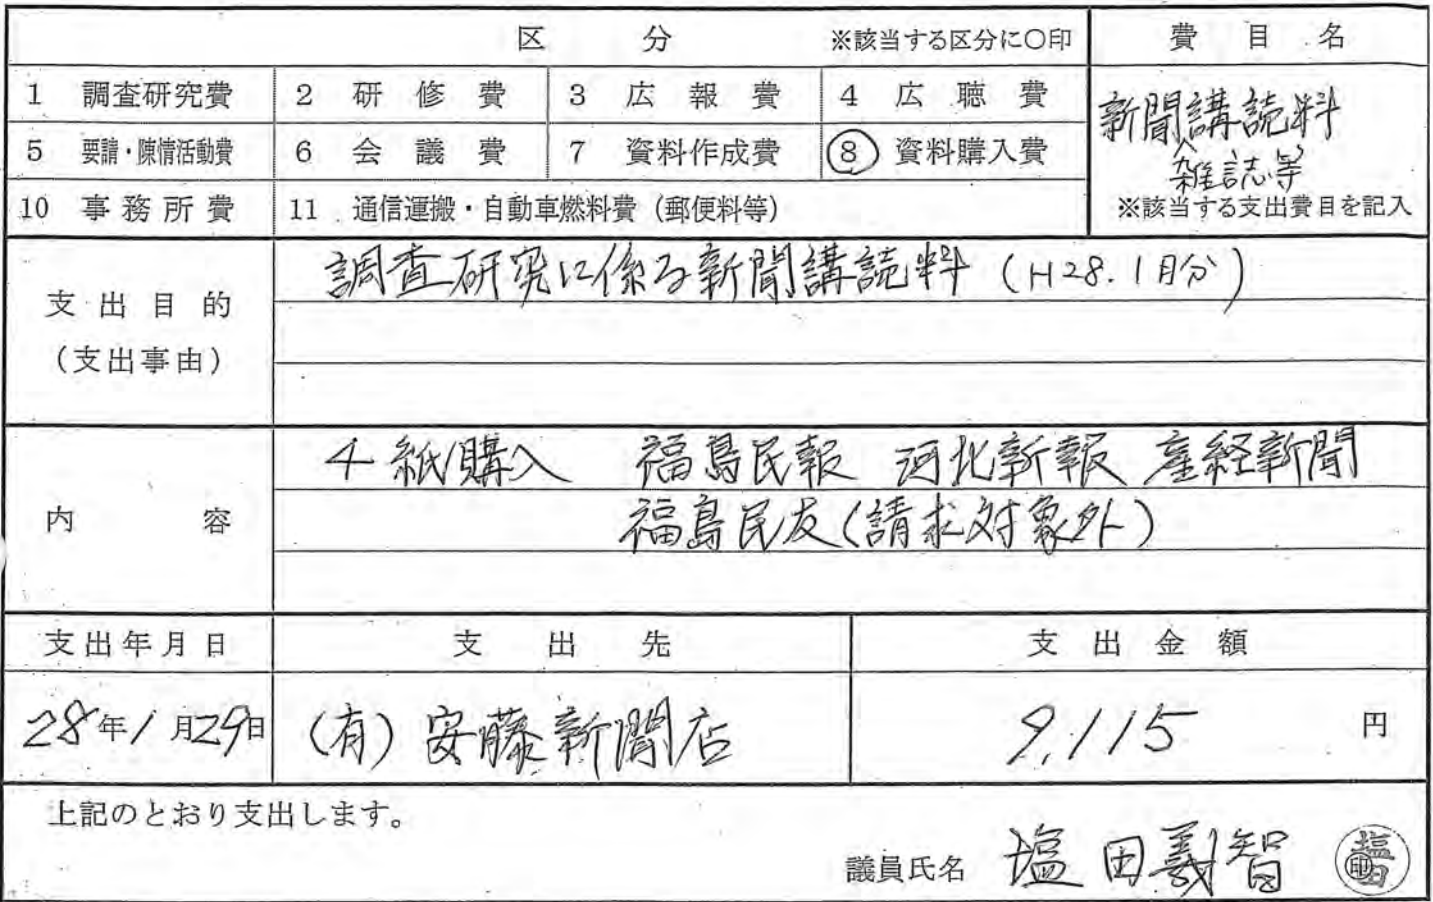 区分 ※該当する区分に〇印 費目名
1 調査研究費 2 研修費 3 広報費 4 広聴費
新聞講読料
5 要請・陳情活動費 6 会議費 7 資料作成費 ⑧ 資料購入費
雑誌等
10 事務所費 11 通信運搬・自動車燃料費（郵便料等） ※該当する支出費目を記入
調査研究に係る新聞講読料（H28.1月分）
支出目的
（支出事由）
4紙購入 福島民報 河北新報 産経新聞
内容
福島民友（請求対象外）
支出年月日 支出先 支出金額
28年1月29日 (有)安藤新聞店 9,115円
上記のとおり支出します。
議員氏名 塩田義智 塩田 印